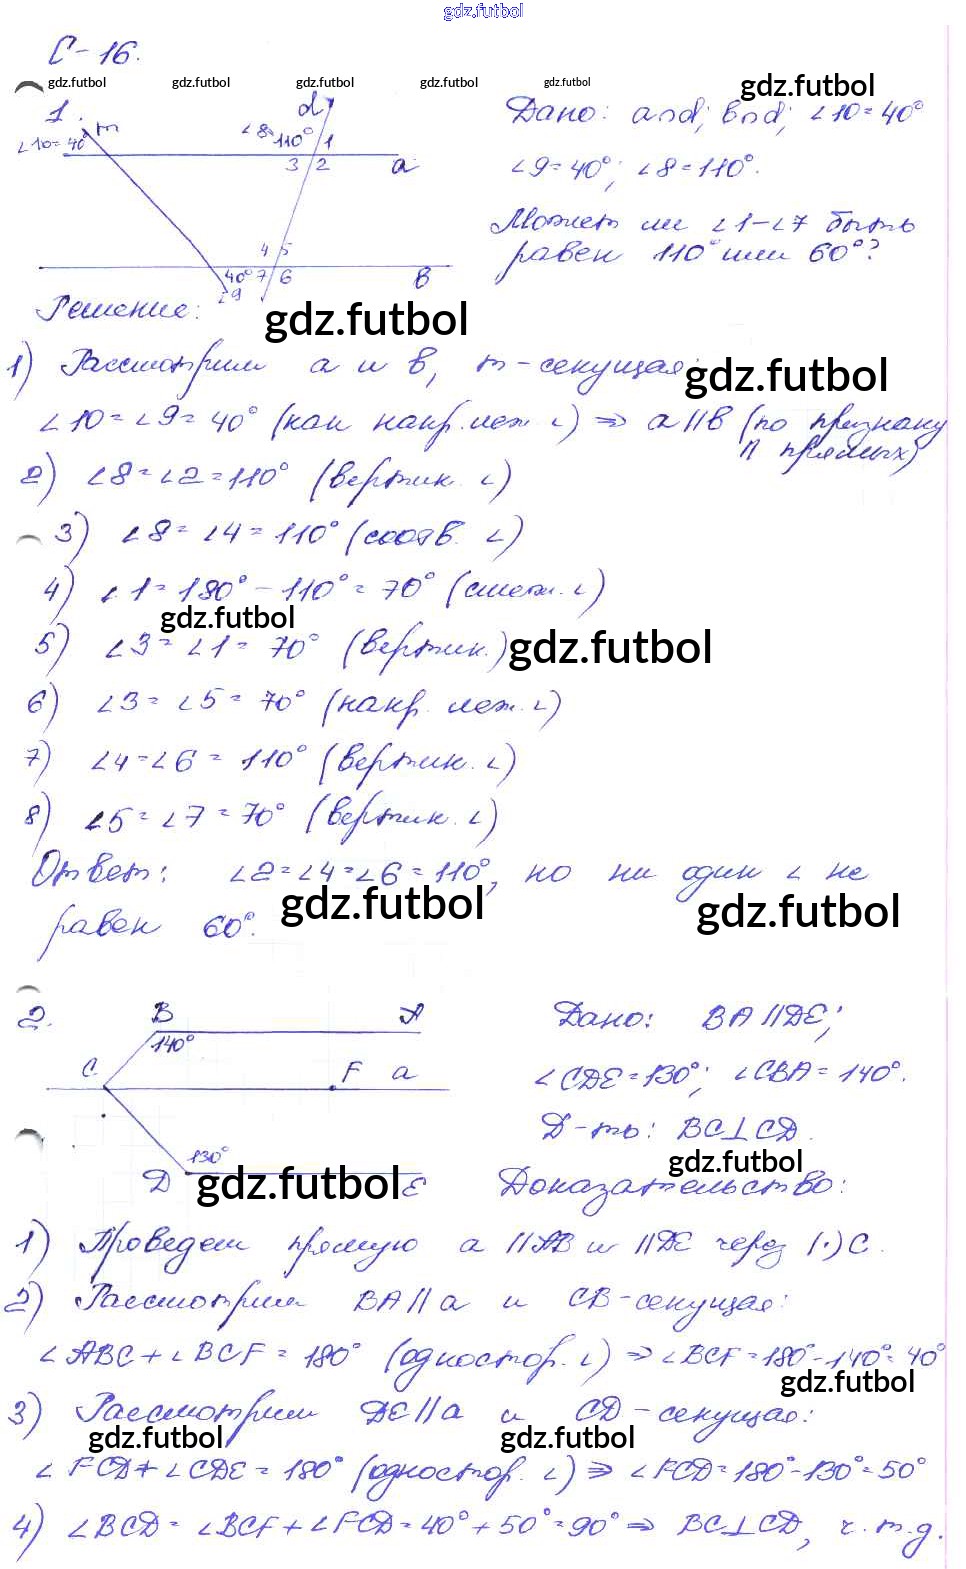 gdz.futbol
С-16.
gdz.futbol gdz.futbol gdz.futbol gdz.futbol gdz.futbol gdz.futbol
1.
m
d
∠10=40°
∠8=110° 1
3 2
a
4 5
40° 7 6
∠9
в
Дано: a∩d; в∩d; ∠10=40°
∠9=40°; ∠8=110°.
Может ли ∠1-∠7 быть
равен 110° или 60°?
Решение:
gdz.futbol
1) Рассмотрим a и в, m-секущая:
gdz.futbol
∠10=∠9=40° (как накр. леж. ∠) ⇒ a||в (по признаку
|| прямых)
2) ∠8=∠2=110° (вертик. ∠)
3) ∠8=∠4=110° (соотв. ∠)
4) ∠1=180°-110°=70° (смеж. ∠)
gdz.futbol
5) ∠3=∠1=70° (вертик.)
gdz.futbol
6) ∠3=∠5=70° (накр. леж. ∠)
7) ∠4=∠6=110° (вертик. ∠)
8) ∠5=∠7=70° (вертик. ∠)
Ответ: ∠2=∠4=∠6=110°, но ни один ∠ не
gdz.futbol gdz.futbol
равен 60°.
2.
B A
140°
C F a
130°
D E
gdz.futbol
Дано: BA||DE;
∠CDE=130°; ∠CBA=140°.
Д-ть: BC⊥CD.
gdz.futbol
Доказательство:
1) Проведем прямую a ||AB и ||DE через (·) C.
2) Рассмотрим BA||a и CB-секущая:
∠ABC+∠BCF=180° (одностор. ∠) ⇒ ∠BCF=180°-140°=40°
gdz.futbol
3) Рассмотрим DE||a и CD-секущая:
gdz.futbol gdz.futbol
∠FCD+∠CDE=180° (одностор. ∠) ⇒ ∠FCD=180°-130°=50°
4) ∠BCD=∠BCF+∠FCD=40°+50°=90° ⇒ BC⊥CD, ч.т.д.